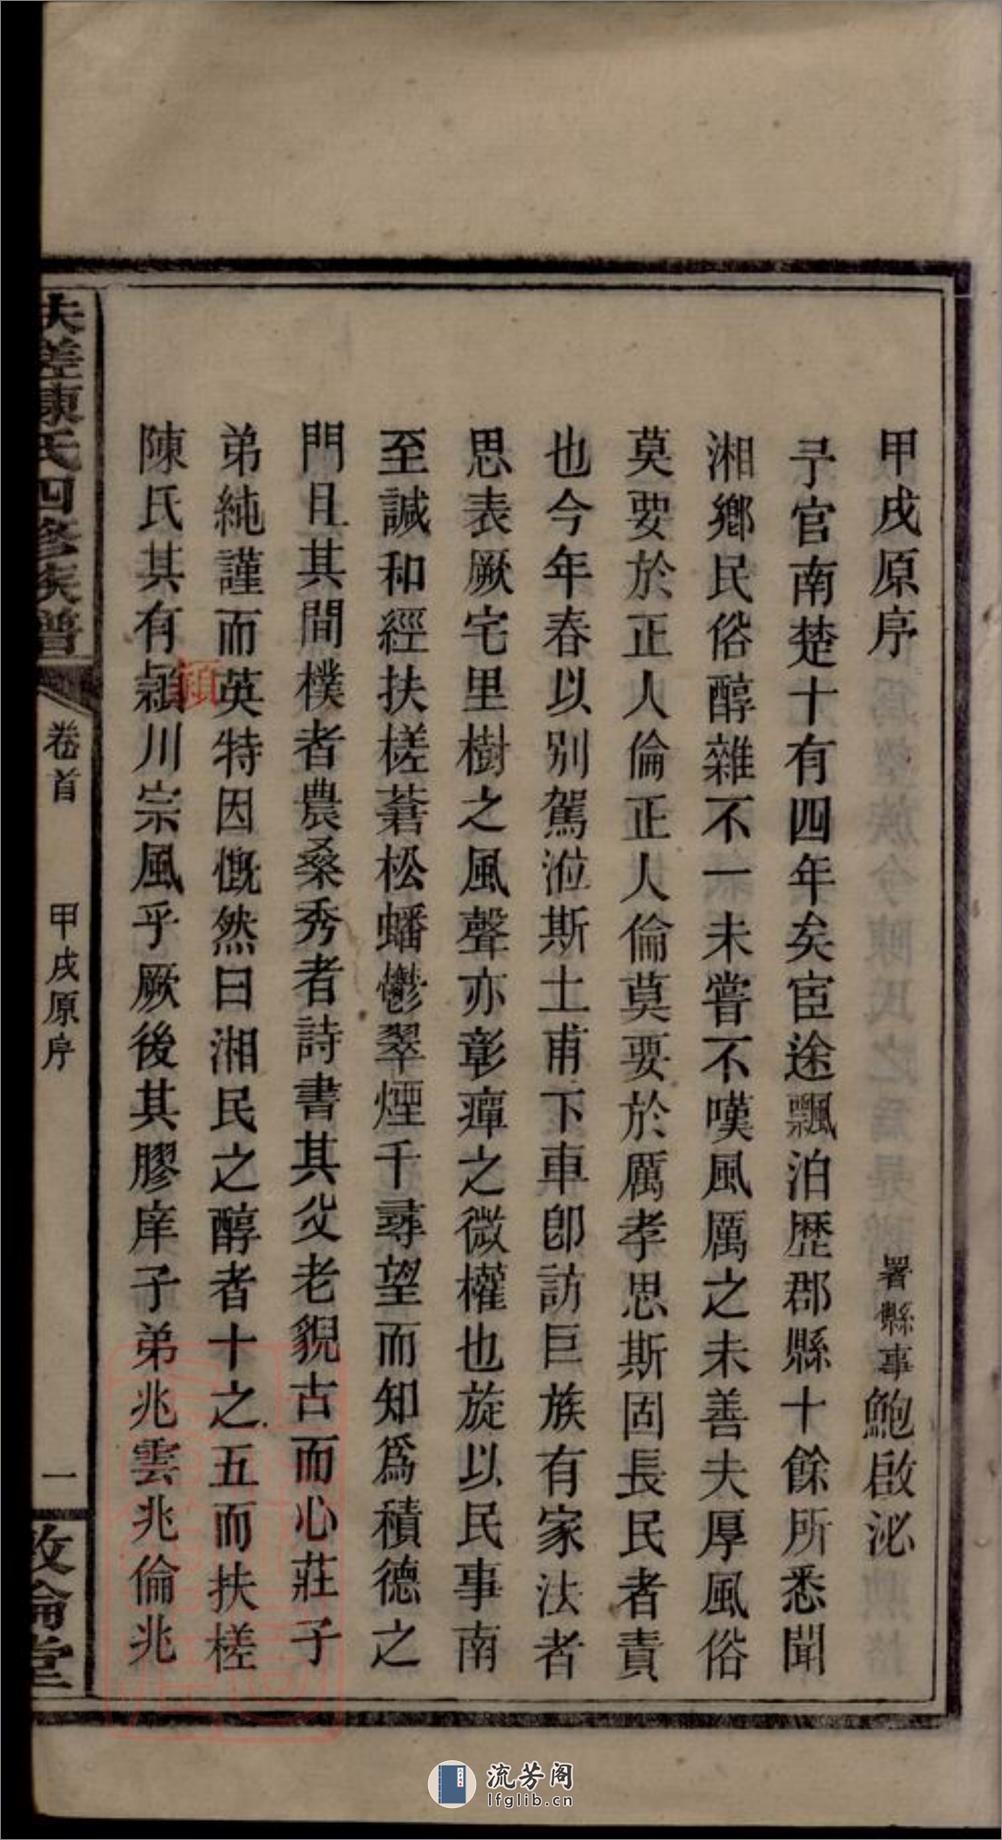 甲戌原序
署縣事鮑啟泌
予官南楚十有四年矣宦途飄泊歷郡縣十餘所悉聞
湘鄉民俗醇雜不一未嘗不嘆風厲之未善夫厚風俗
莫要於正人倫正人倫莫要於厲孝思斯固長民者責
也今年春以別駕涖斯土甫下車卽訪巨族有家法者
思表厥宅里樹之風聲亦彰癉之微權也旋以民事南
至諴和經扶槎蒼松蟠鬱翠煙千尋望而知爲積德之
門且其間樸者農桑秀者詩書其父老貌古而心莊子
弟純謹而英特因慨然曰湘民之醇者十之五而扶槎
陳氏其有潁川宗風乎厥後其膠庠子弟兆雲兆倫兆
潁
扶槎陳氏四修族譜
卷首
甲戌原序
一
敦倫堂
流芳阁
lfglib.cn